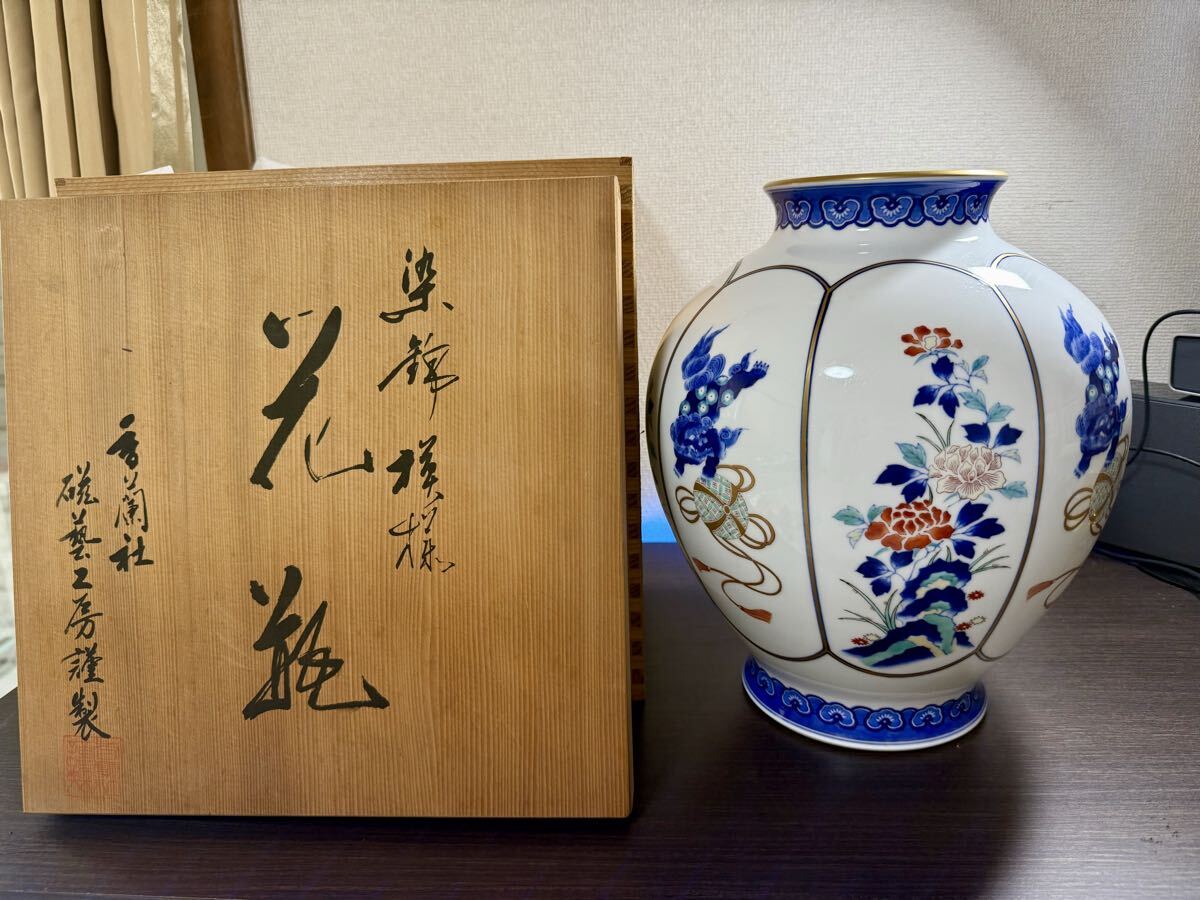 染錦模様
花瓶
香蘭社
磁藝工房謹製